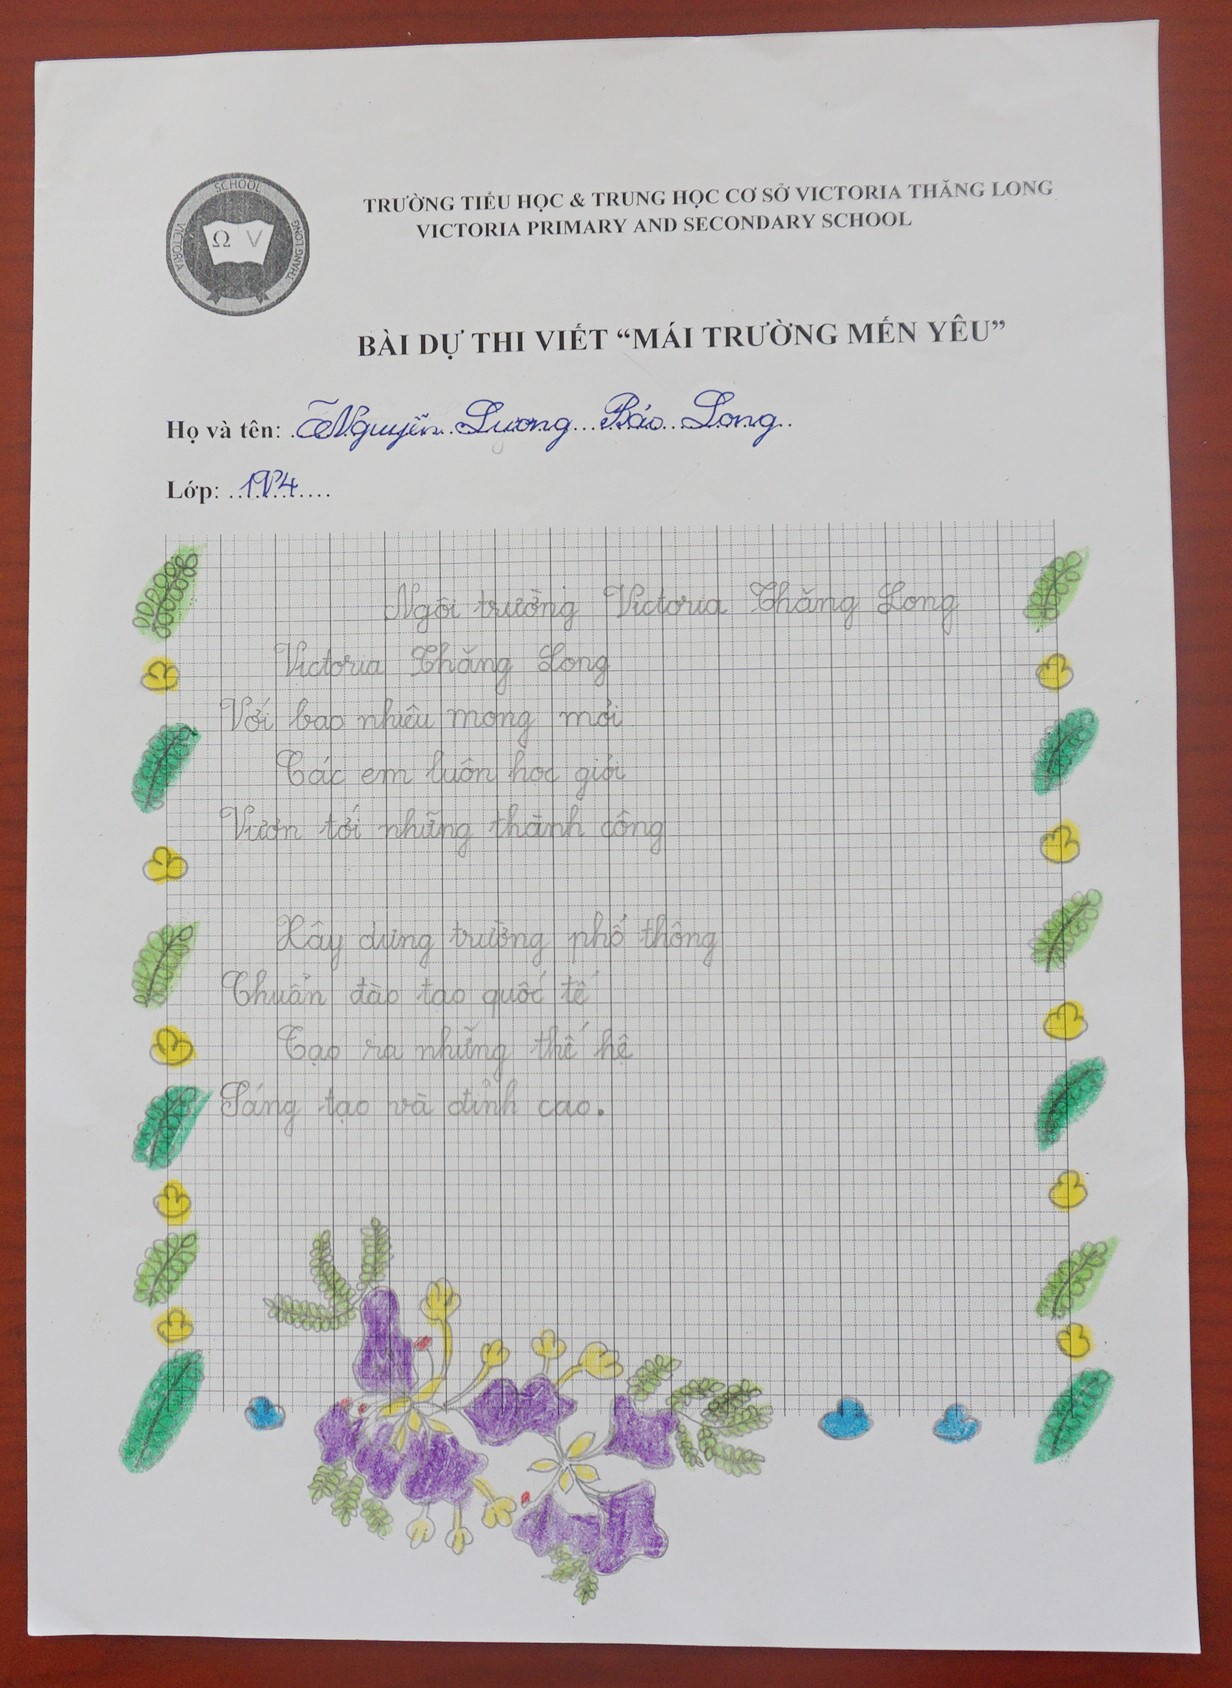 SCHOOL
VICTORIA
THĂNG LONG
Ω V
TRƯỜNG TIỂU HỌC & TRUNG HỌC CƠ SỞ VICTORIA THĂNG LONG
VICTORIA PRIMARY AND SECONDARY SCHOOL
BÀI DỰ THI VIẾT “MÁI TRƯỜNG MẾN YÊU”
Họ và tên: Nguyễn Lương Bảo Long
Lớp: 1V4
Ngôi trường Victoria Thăng Long
Victoria Thăng Long
Với bao nhiêu mong mỏi
Các em luôn học giỏi
Vươn tới những thành công
Xây dựng trường phổ thông
Chuẩn đào tạo quốc tế
Tạo ra những thế hệ
Sáng tạo và đỉnh cao.